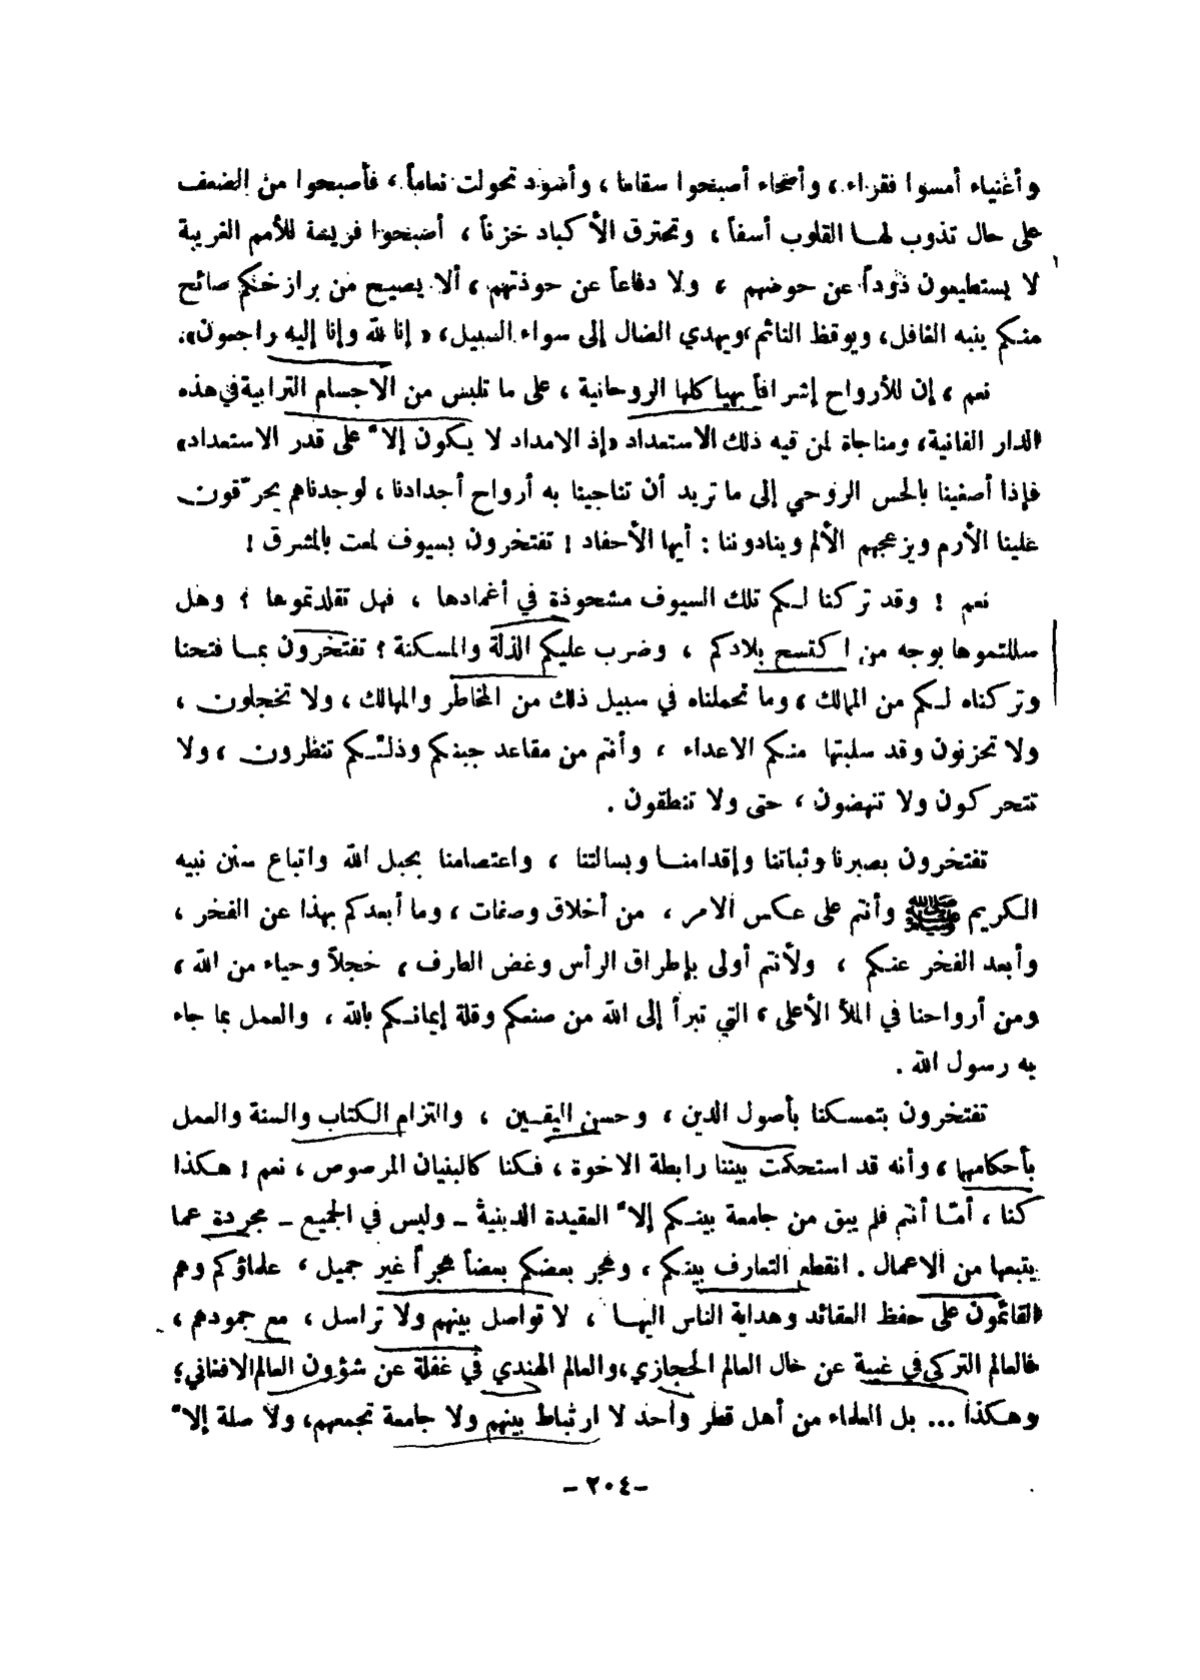 وأغنياء أمسوا فقراء ، وأصحاء أصبحوا سقاما ، وأسود تحولت نعاماً ، فأصبحوا من الضعف
على حال تذوب لهـا القلوب أسفاً ، وتحترق الأكباد حزناً ، أصبحوا فريسة للأمم الغريبة
لا يستطيعون ذوداً عن حوضهم ، ولا دفاعاً عن حوذتهم ، ألا يصيح من برازخكم صائح
منكم ينبه الغافل، ويوقظ النائم ،ويهدي الضال إلى سواء السبيل، « إنا لله وإنا إليه راجعون».
نعم ، إن للأرواح إشرافاً بهياكلها الروحانية ، على ما تلبس من الاجسام الترابية في هذه
الدار الفانية، ومناجاة لمن فيه ذلك الاستعداد «إذ الامداد لا يكون إلاّ على قدر الاستعداد»
فإذا أصغينا بالحس الروحي إلى ما تريد أن تناجينا به أرواح أجدادنا ، لوجدناهم يحرّقون
علينا الأرم ويزعجهم الألم وينادوننا : أيها الأحفاد ! تفتخرون بسيوف لمعت بالمشرق !
نعم ! وقد تركنا لـكم تلك السيوف مشحوذة في أغمادها ، فهل تقلدتموها ؟ وهل
سللتموها بوجه من اكتسح بلادكم ، وضرب عليكم الذلة والمسكنة ؟ تفتخرون بمـا فتحنا
وتركناه لـكم من الممالك ، وما تحملناه في سبيل ذلك من المخاطر والمهالك ، ولا تخجلون ،
ولا تحزنون وقد سلبتها منـكم الاعداء ، وأنتم من مقاعد جبنكم وذلّتـكم تنظرون ، ولا
تتحركون ولا تنهضون ، حتى ولا تنطقون .
تفتخرون بصبرنا وثباتنا وإقدامنـا وبسالتنا ، واعتصامنا بحبل الله واتباع سنن نبيه
الكريم ﷺ وأنتم على عكس الامر ، من أخلاق وصفات ، وما أبعدكم بهذا عن الفخر ،
وأبعد الفخر عنـكم ، ولأنتم أولى بإطراق الرأس وغض الطرف ، خجلاً وحياء من الله ،
ومن أرواحنا في الملأ الأعلى ، التي تبرأ إلى الله من صنعكم وقلة إيمانـكم بالله ، والعمل بما جاء
به رسول الله .
تفتخرون بتمسكنا بأصول الدين ، وحسن اليقـين ، والتزام الكتاب والسنة والعمل
بأحكامها ، وأنه قد استحكمت بيننا رابطة الاخوة ، فـكنا كالبنيان المرصوص ، نعم ! هـكذا
كنا ، أمّا أنتم فلم يبق من جامعة بينـكم إلاّ العقيدة الدينية ـ وليس في الجميع ـ مجردة عما
يتبعها من الاعمال . انقطع التعارف بينكم ، وهجر بعضكم بعضاً هجراً غير جميل ، علماؤكم وهم
القائمون على حفظ العقائد وهداية الناس اليهـا ، لا تواصل بينهم ولا تراسل ، مع جمودهم ،
فالعالم التركي في غيبة عن حال العالم الحجازي، والعالم الهندي في غفلة عن شؤون العالم الافغاني ؛
وهـكذا ... بل العلماء من أهل قطر واحد لا ارتباط بينهم ولا جامعة تجمعهم، ولا صلة إلاّ
ـ ٢٠٤ ـ